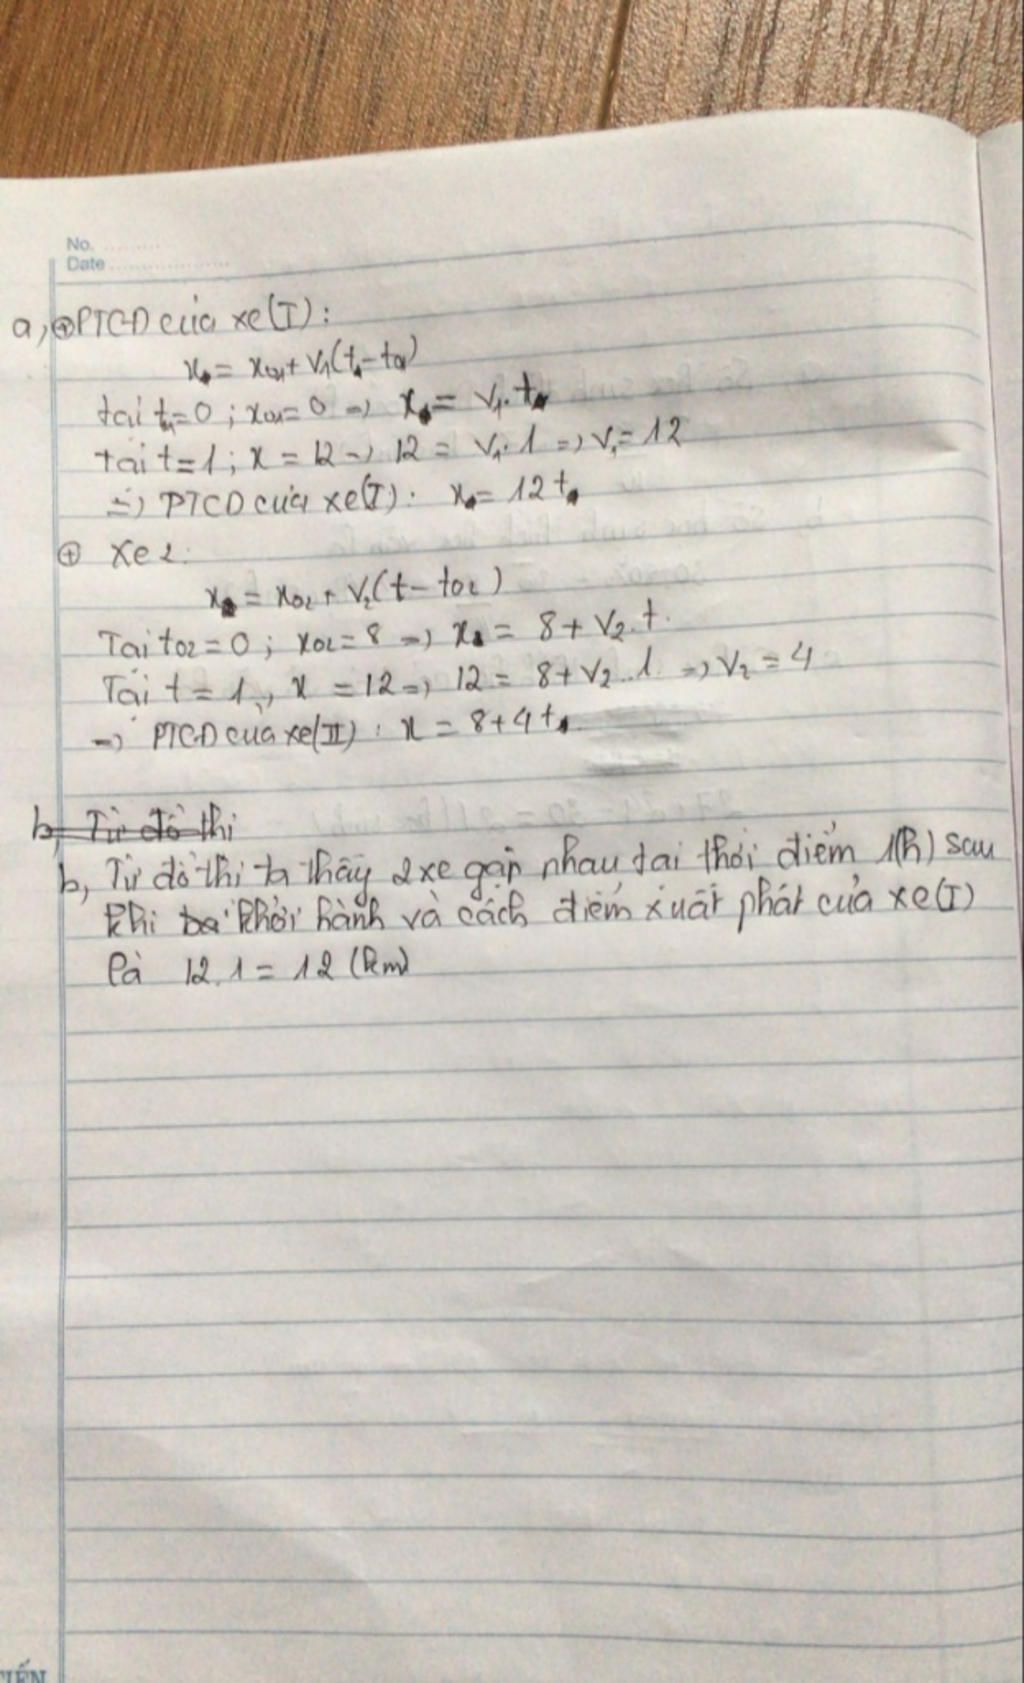 No.
Date
a, ⊕ PTCĐ của xe (I):
x = x01 + v1(t - t01)
tại t01=0; x01=0 => x = v1.t
tại t=1; x = 12 => 12 = v1.1 => v1=12
=> PTCĐ của xe(I): x = 12t
⊕ xe 2:
x = x02 + v2(t - t02)
Tại t02=0; x02=8 => x = 8 + v2.t.
Tại t = 1, x = 12 => 12 = 8 + v2.1. => v2 = 4
=> PTCĐ của xe(II): x = 8+4t
b, Từ đồ thị
b, Từ đồ thị ta thấy 2 xe gặp nhau tại thời điểm 1(h) sau
khi khởi hành và cách điểm xuất phát của xe(I)
là 12.1 = 12 (km)
TIẾN